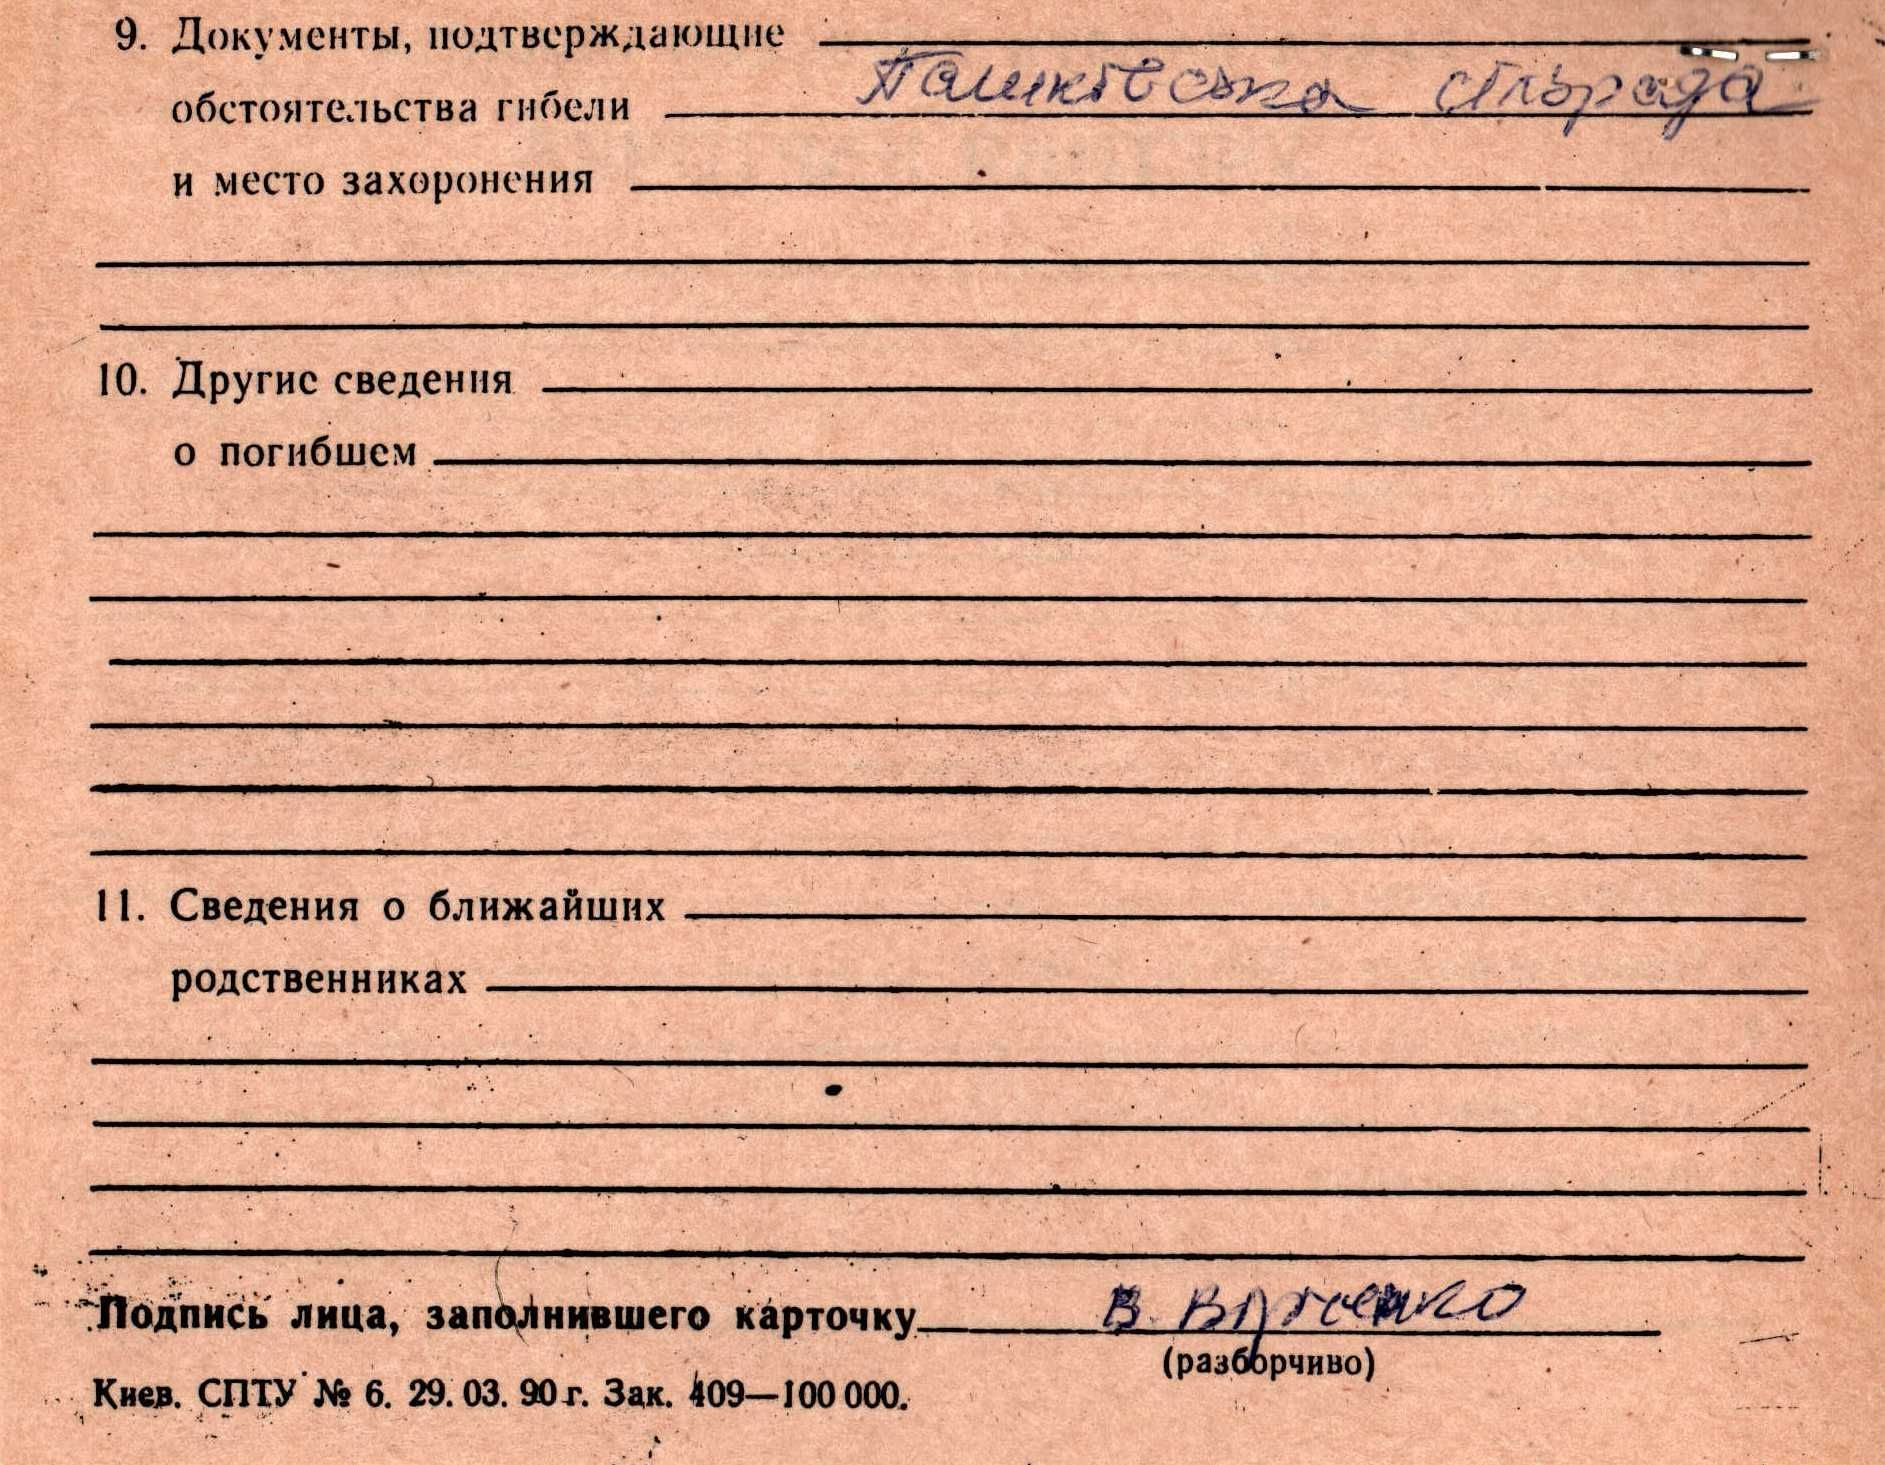 9. Документы, подтверждающие
обстоятельства гибели Пашківська сільрада
и место захоронения
10. Другие сведения
о погибшем
11. Сведения о ближайших
родственниках
Подпись лица, заполнившего карточку В.
(разборчиво)
Киев. СПТУ № 6. 29. 03. 90 г. Зак. 409—100 000.